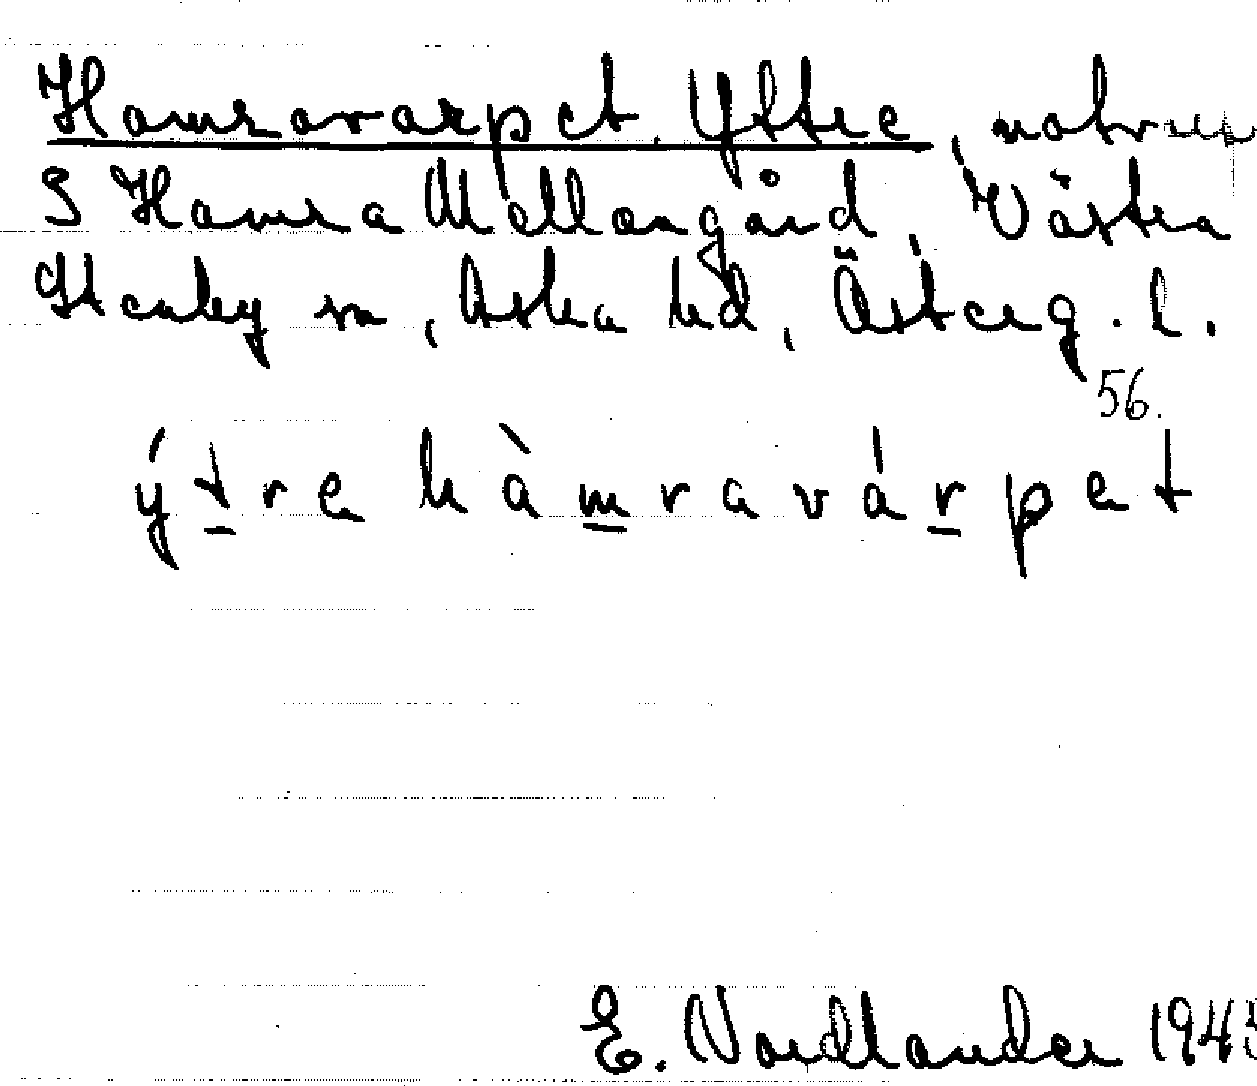 Hamravarpet, Yttre, notvarp
S Hamra Mellangård, Västra
Stenby sn, Aska hd, Österg. l.
56.
ýtre hàmravárpet
E. Nordlander 194